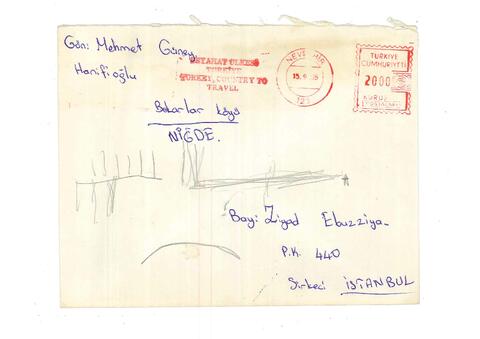 Gön: Mehmet Güney
Hanifioğlu
Bekarlar köyü
NİĞDE.
TÜRKİYE
TURKEY, COUNTRY TO
TRAVEL
NEVŞEHİR
TÜRKİYE
CUMHURİYETİ
2000
KURUŞ
POSTALARI
Bay: Ziyad Ebuzziya
P.K. 440
Sirkeci İSTANBUL